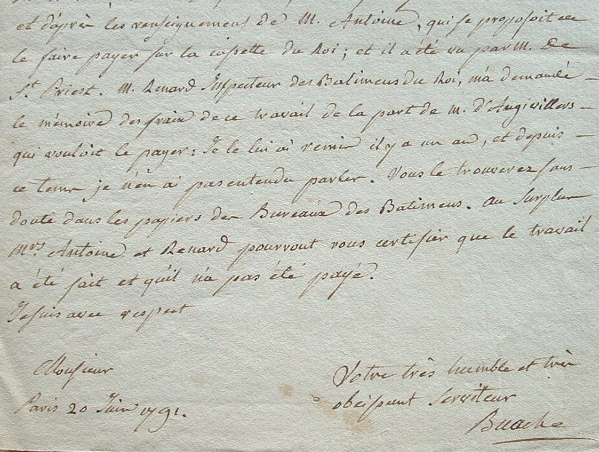 et d'après les renseignemens de M. Antoine, qui se proposoit de
le faire payer sur la cassette du Roi; et il a été vu par M. De
St. Priest. M. Renard Inspecteur des Batimens du Roi, m'a demandé
le mémoire des fraix de ce travail de la part de M. d'Angivillers
qui vouloit le payer: Je le lui ai remis il y a un an, et depuis
ce tems je n'en ai pas entendu parler. Vous le trouverez sans
doute dans les papiers des Bureaux des Batimens. Au surplus
Mrs. Antoine et Renard pourront vous certifier que le travail
a été fait et qu'il n'a pas été payé.
Je suis avec respect
Monsieur
Paris 20 Juin 1791.
Votre très humble et très
obeissant Serviteur
Buache